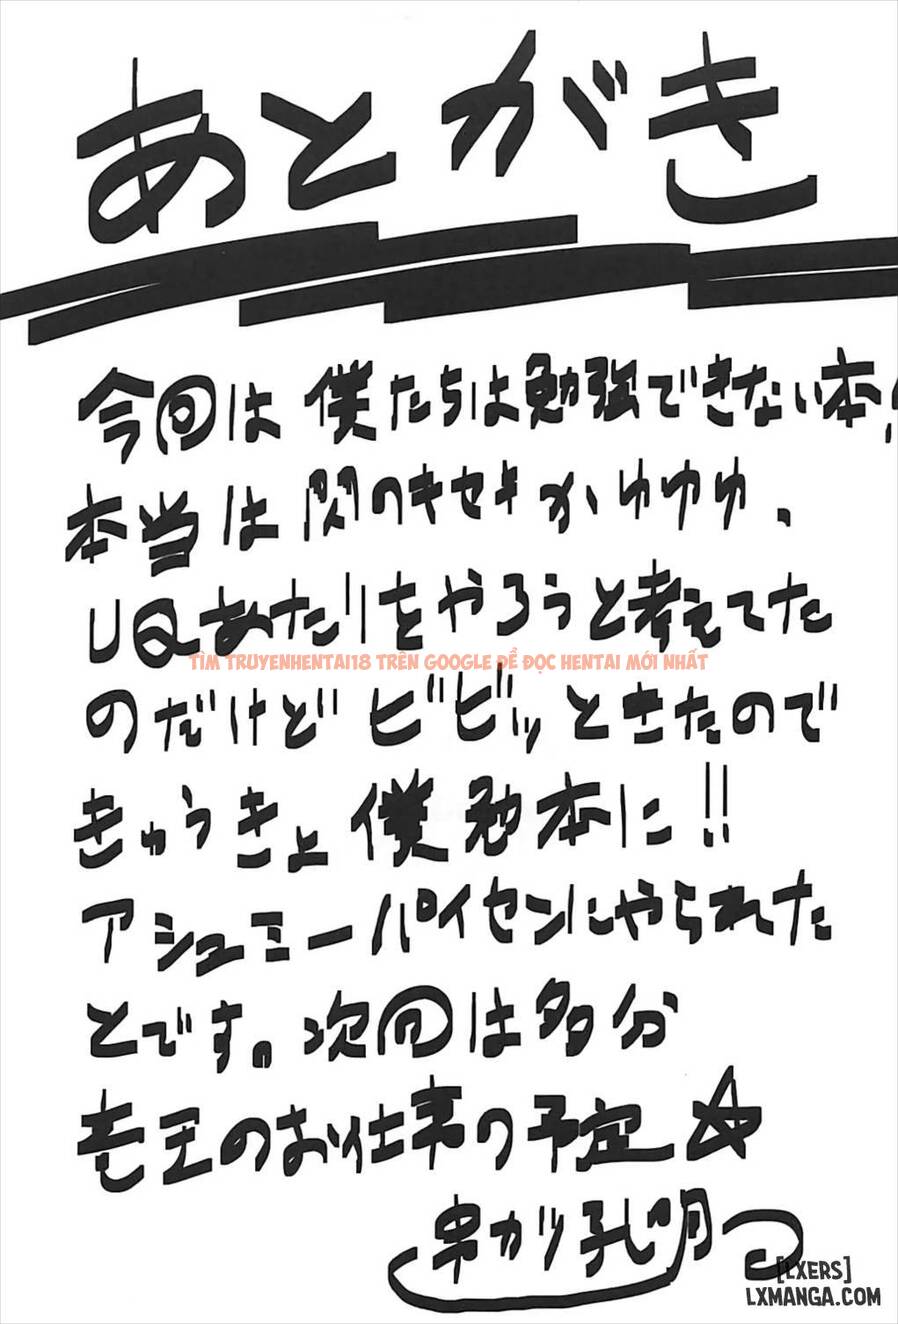 あとがき
今回は僕たちは勉強できない本!
本当は閃のキセキかゆゆゆ、
UQあたりをやろうと考えてた
TÌM TRUYENHENTAI18 TRÊN GOOGLE ĐỂ ĐỌC HENTAI MỚI NHẤT
のだけどビビッときたので
きゅうきょ僕勉本に!!
アシュミーパイセンにやられた
とです。次回は多分
竜王のお仕事の予定☆
串カツ孔明
[LXERS]
LXMANGA.COM